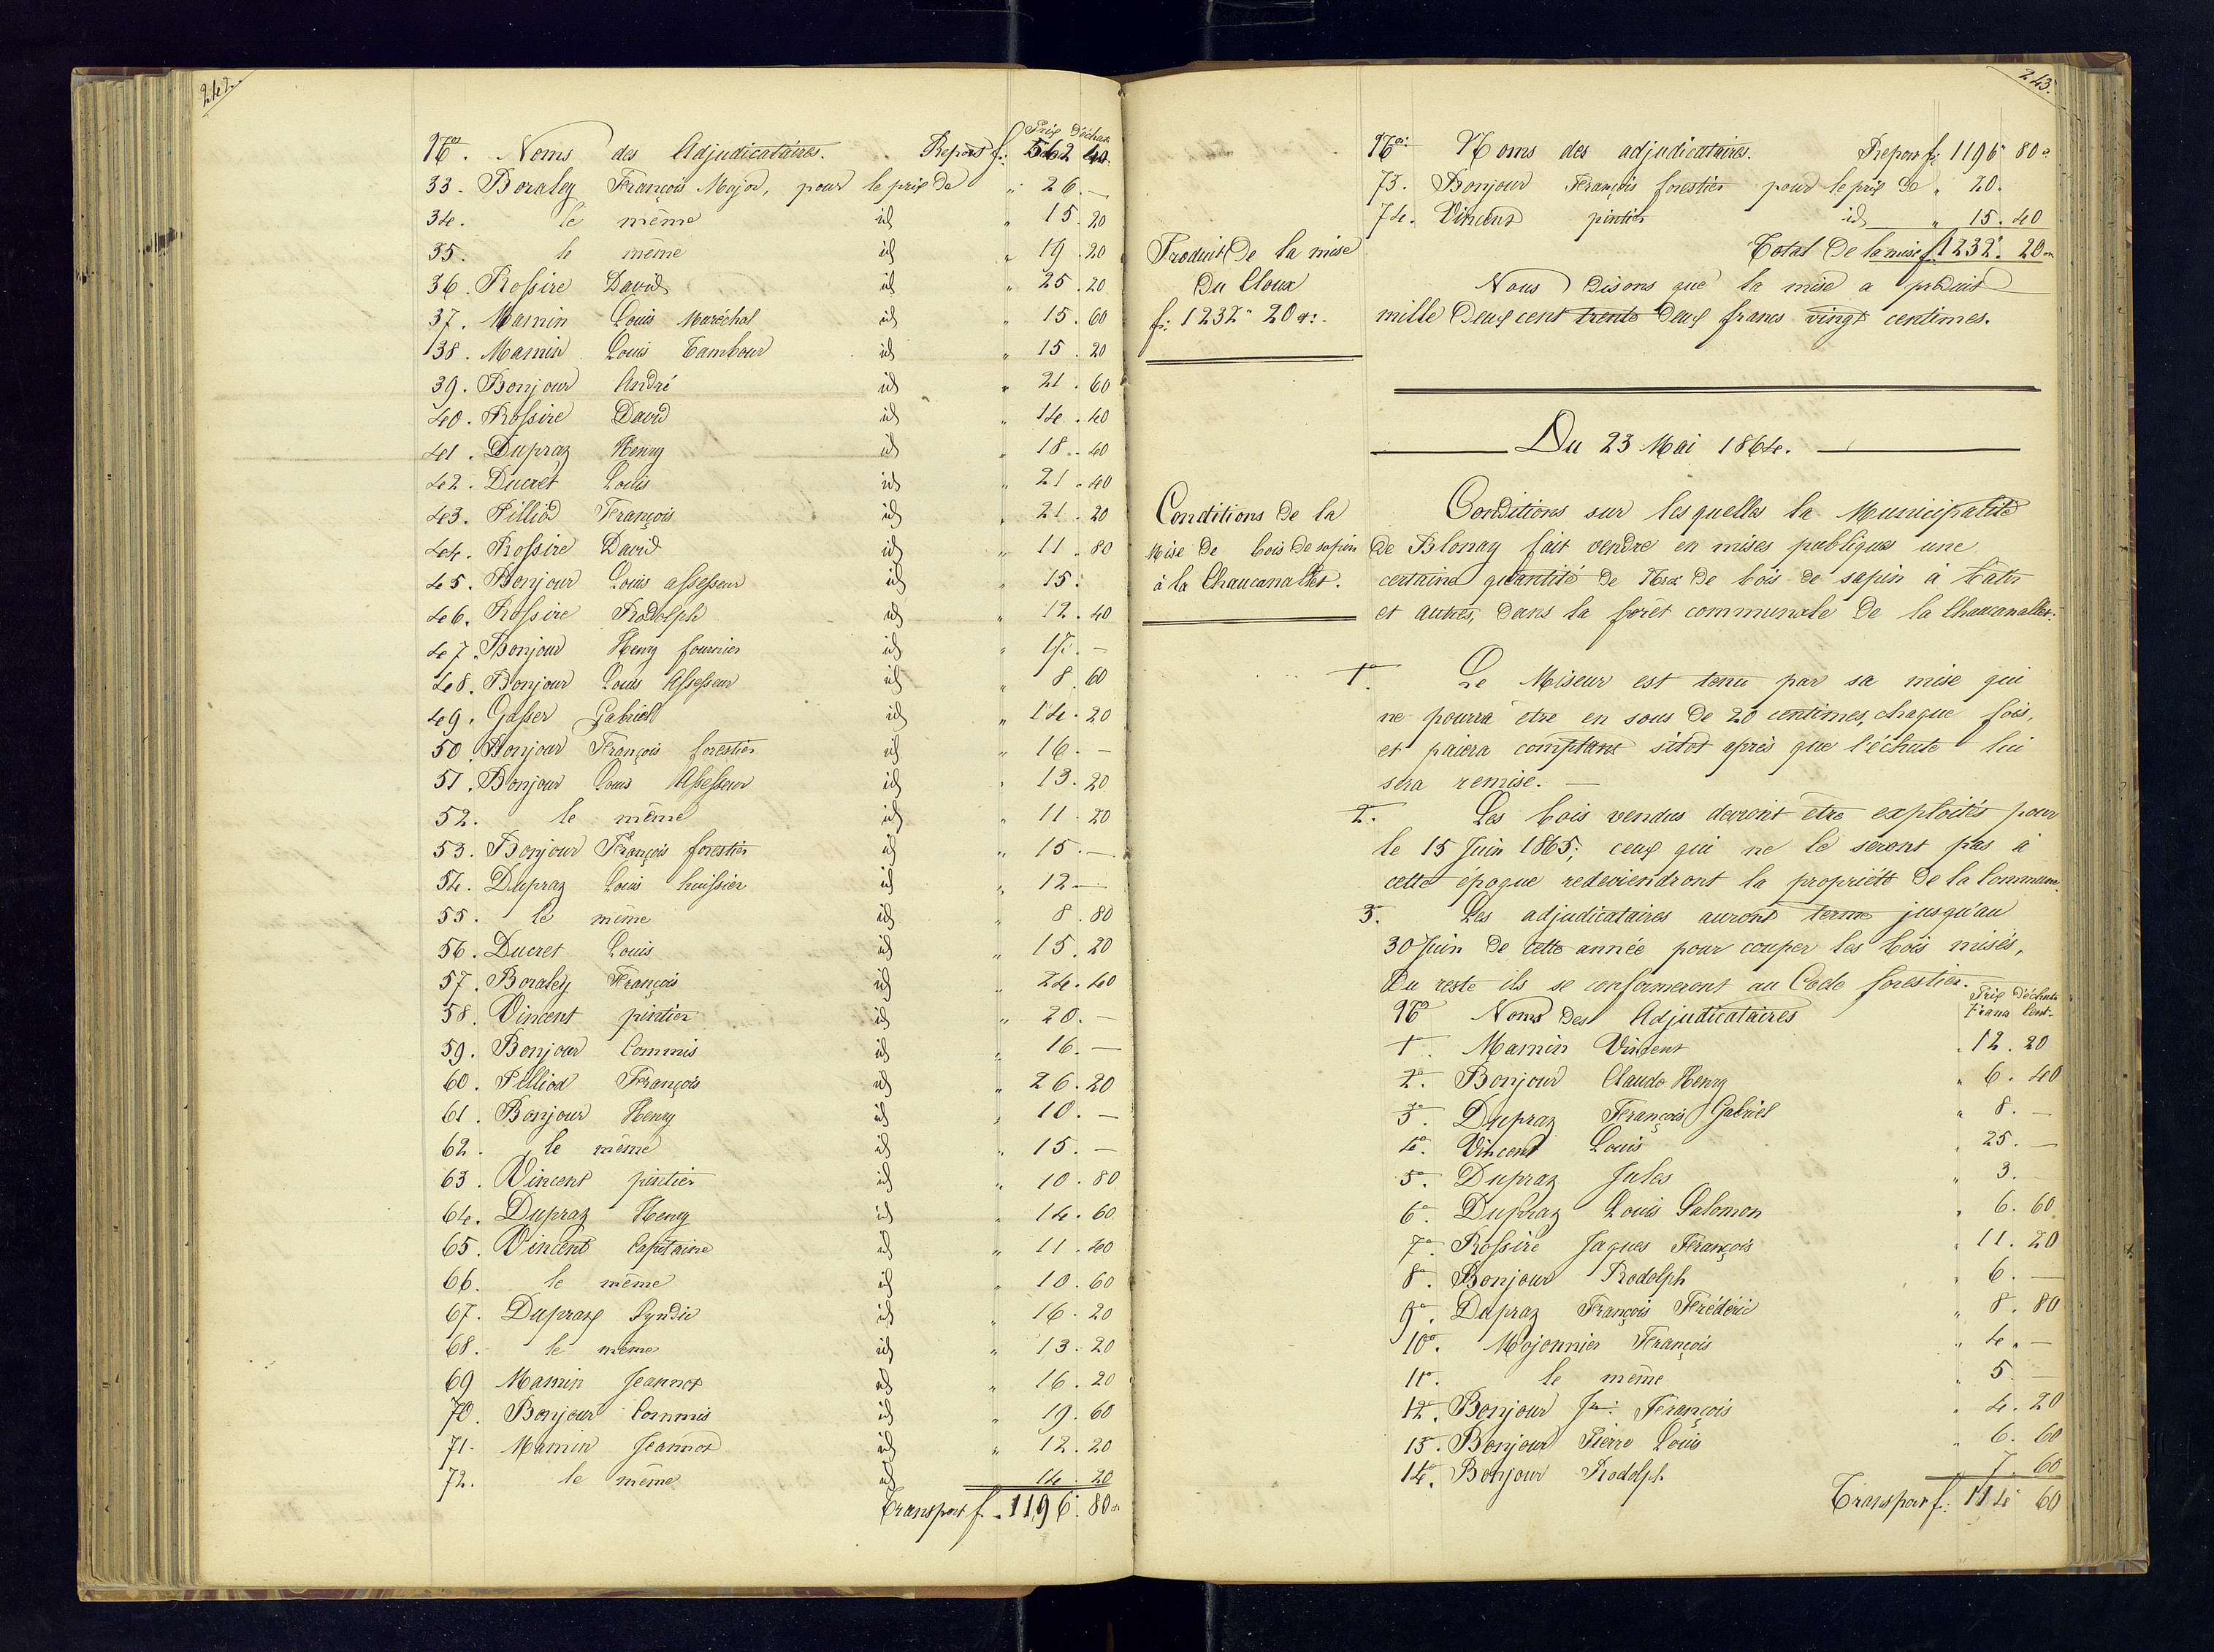 242.
Prix d'échute
Nos. Noms des Adjudicataires. Report f: 562 40.
33. Boraley François Major, pour le prix de " 26. —
34. le même id " 15. 20
35. le même id " 19. 20
36. Rossire David id " 25. 20
37. Mamin Louis Maréchal id " 15. 60
38. Mamin Louis Tambour id " 15. 20
39. Bonjour André id " 21. 60
40. Rossire David id " 14. 40
41. Dupraz Henry id " 18. 40
42. Ducret Louis id " 21. 40
43. Pilliod François id " 21. 20
44. Rossire David id " 11. 80
45. Bonjour Louis assesseur id " 15.
46. Rossire Rodolph id " 12. 40
47. Bonjour Henry fournier id " 17. —
48. Bonjour Louis Assesseur id " 8. 60
49. Gasser Gabriel id " 14. 20
50. Bonjour François forestier id " 16. —
51. Bonjour Louis Assesseur id " 13. 20
52. le même id " 11. 20
53. Bonjour François forestier id " 15. —
54. Dupraz Louis huissier id " 12 —
55. le même id " 8. 80
56. Ducret Louis id " 15. 20
57. Boraley François id " 24. 40
58. Vincent pintier id " 20. —
59. Bonjour Commis id " 16. —
60. Pilliod François id " 26. 20
61. Bonjour Henry id " 10. —
62. le même id " 15. —
63. Vincent pintier id " 10. 80
64. Dupraz Henry id " 14. 60
65. Vincent Capitaine id " 11. 40
66. le même id " 10. 60
67. Duprax Syndic id " 16. 20
68. le même id " 13. 20
69 Mamin Jeannot id " 16. 20
70. Bonjour Commis id " 19. 60
71. Mamin Jeannot id " 12. 20
72. le même id 14. 20
Transport f. 1196. 80
243.
Nos. Noms des adjudicataires. Report f: 1196 80
73. Bonjour François forestier pour le prix de " 20.
74. Vincent pintier id " 15. 40
Total de la mise f. 1232. 20
Produit de la mise
du Cloux
f: 1232 20
Nous disons que la mise a produit
mille deux cent trente deux francs vingt centimes.
Du 23 Mai 1864.
Conditions de la
Mise de bois de sapin
à la Chaucanallet.
Conditions sur lesquelles la Municipalité
de Blonay fait vendre en mises publiques une
certaine quantité de Nos de bois de sapin à batir
et autres, dans la forêt communale de la Chaucanallet.
1. Le Miseur est tenu par sa mise qui
ne pourra être en sous de 20 centimes, chaque fois,
et paiera comptant sitôt après que l'échute lui
sera remise. —
2. Les bois vendus devront être exploités pour
le 15 Juin 1865; ceux qui ne le seront pas à
cette époque redeviendront la propriété de la Commune.
3. Les adjudicataires auront terme jusqu'au
30 Juin de cette année pour couper les bois misés,
Du reste ils se conformeront au Code forestier.
Prix d'échute
No Noms des Adjudicataires Francs Cent.
1. Mamin Vincent " 12. 20
2. Bonjour Claude Henry " 6. 40
3. Dupraz François Gabriel " 8. —
4. Vincent Louis " 25. —
5. Dupraz Jules " 3. —
6. Dupraz Louis Salomon " 6. 60
7. Rossire Jaques François " 11. 20
8. Bonjour Rodolph " 6. —
9. Dupraz François Frédéric " 8. 80
10. Mojonnier François " 4. —
11. le même " 5. —
12. Bonjour Jn: François " 4. 20
13. Bonjour Pierre Louis " 6. 60
14. Bonjour Rodolph " 7. 60
Transport f: 114 60